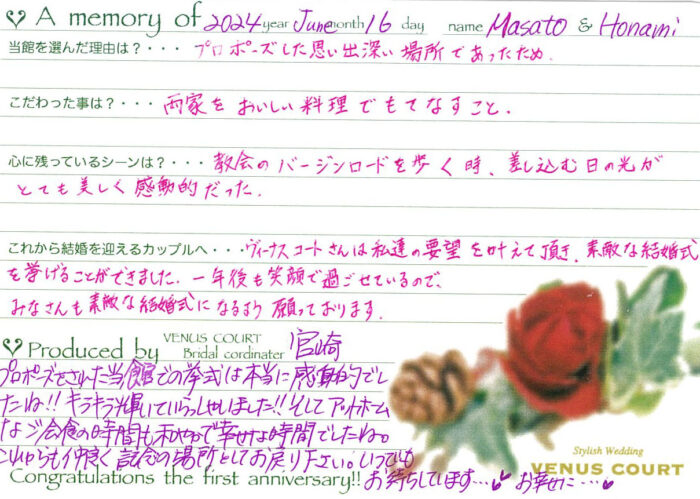 A memory of 2024 year June month 16 day name Masato & Honami
当館を選んだ理由は？・・・ プロポーズした思い出深い場所であったため.
こだわった事は？・・・ 両家をおいしい料理でもてなすこと.
心に残っているシーンは？・・・ 教会のバージンロードを歩く時、差し込む日の光が
とても美しく感動的だった.
これから結婚を迎えるカップルへ・・・ヴィーナスコートさんは私達の要望を叶えて頂き、素敵な結婚式
を挙げることができました. 一年後も笑顔で過ごせているので、
みなさんも素敵な結婚式になるよう願っております.
Produced by VENUS COURT Bridal cordinater 宮崎
プロポーズをされた当館での挙式は本当に感動的でし
たね!! キラキラ輝いていらっしゃいました!! そしてアットホーム
なご会食の時間も和やかで幸せな時間でしたね。
これからも仲良く記念の場所としてお戻り下さい。いつでも
Congratulations the first anniversary!! お待ちしています… お幸せに…
Stylish Wedding
VENUS COURT